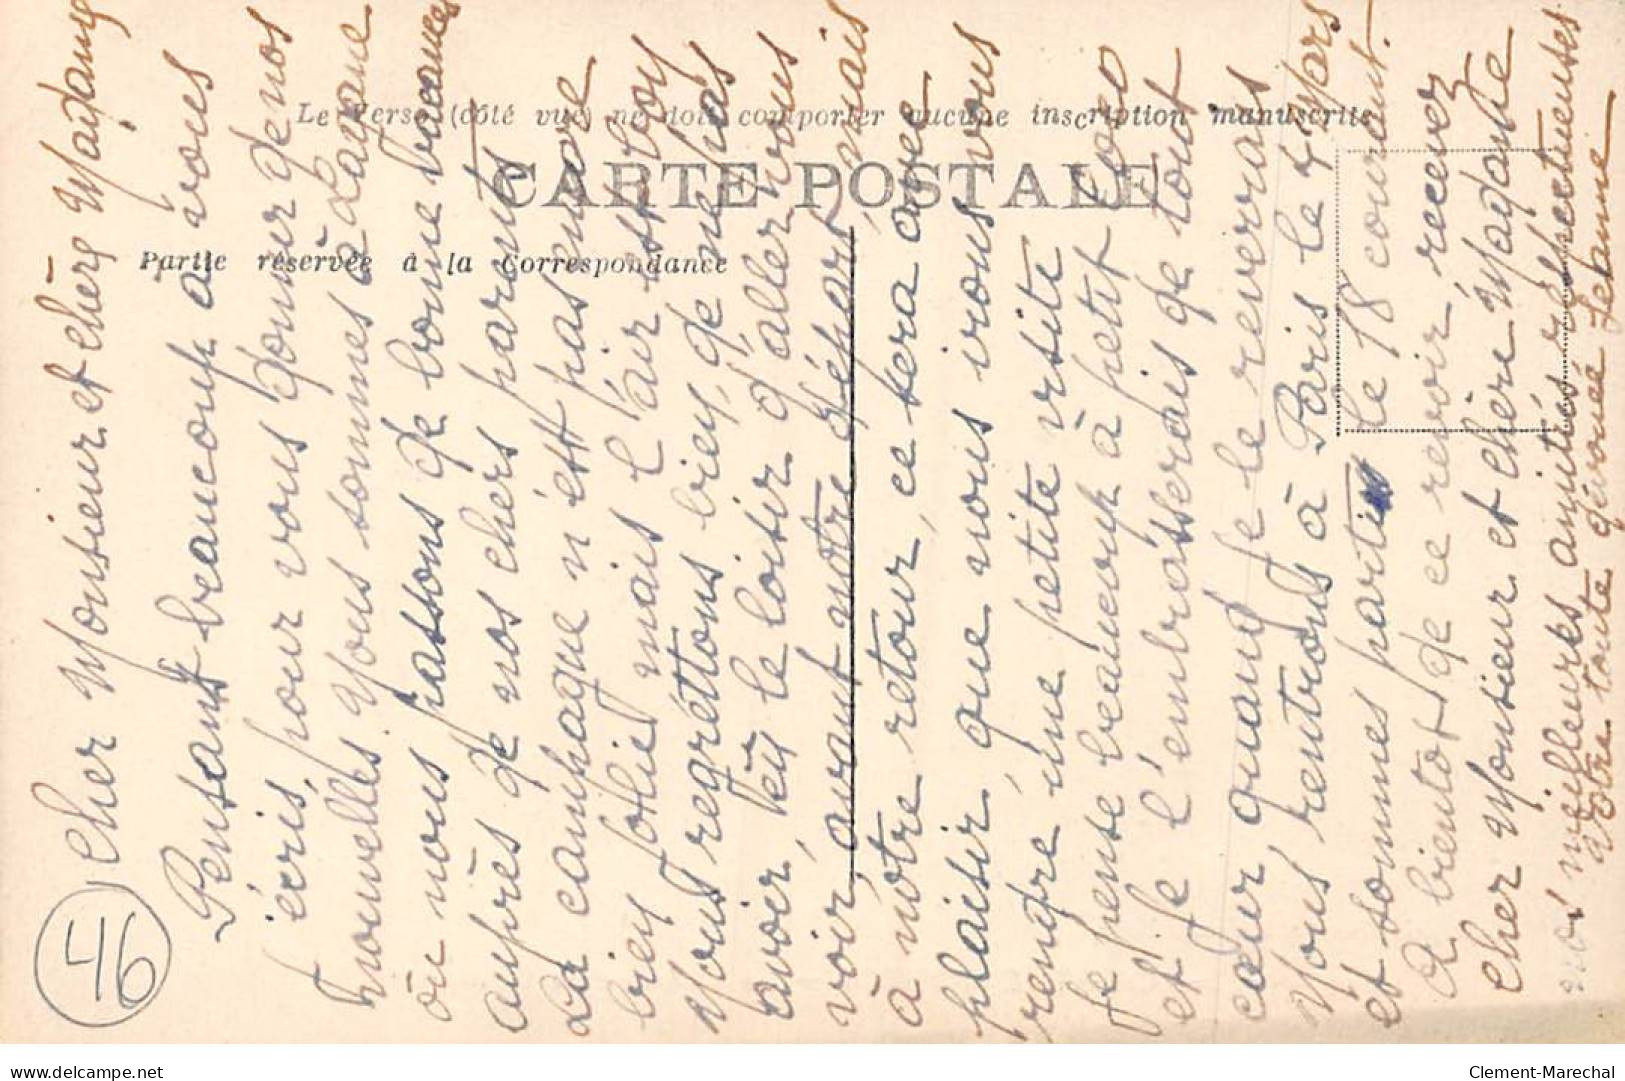 Le Verso (côté vue) ne doit comporter aucune inscription manuscrite
CARTE POSTALE
Partie réservée à la Correspondance
46
Cher Monsieur et chère Madame
Pensant beaucoup à vous
écris, pour vous donner de nos
nouvelles. Nous sommes à
où nous passons de bonne vacances
auprès de nos chers parents
La campagne n'est pas encore
bien jolie mais l'air est bon
Nous regrettons bien, de ne pas
avoir, eu le loisir d'aller vous
voir, avant notre départ, mais
à nôtre retour, ce sera avec
plaisir que nous irons vous
rendre, une petite visite
je pense beaucoup à petit Coco
et je l'embrasserais de tout
cœur, quand je le reverrais
Nous rentrons à Paris le 4 Mars
et sommes partis le 18 courant.
A bientot de ce revoir, recevez
Cher Monsieur et chère Madame
nos meilleures amitiés respectueuses
Votre toute dévouée Jeanne
Clement-Marechal